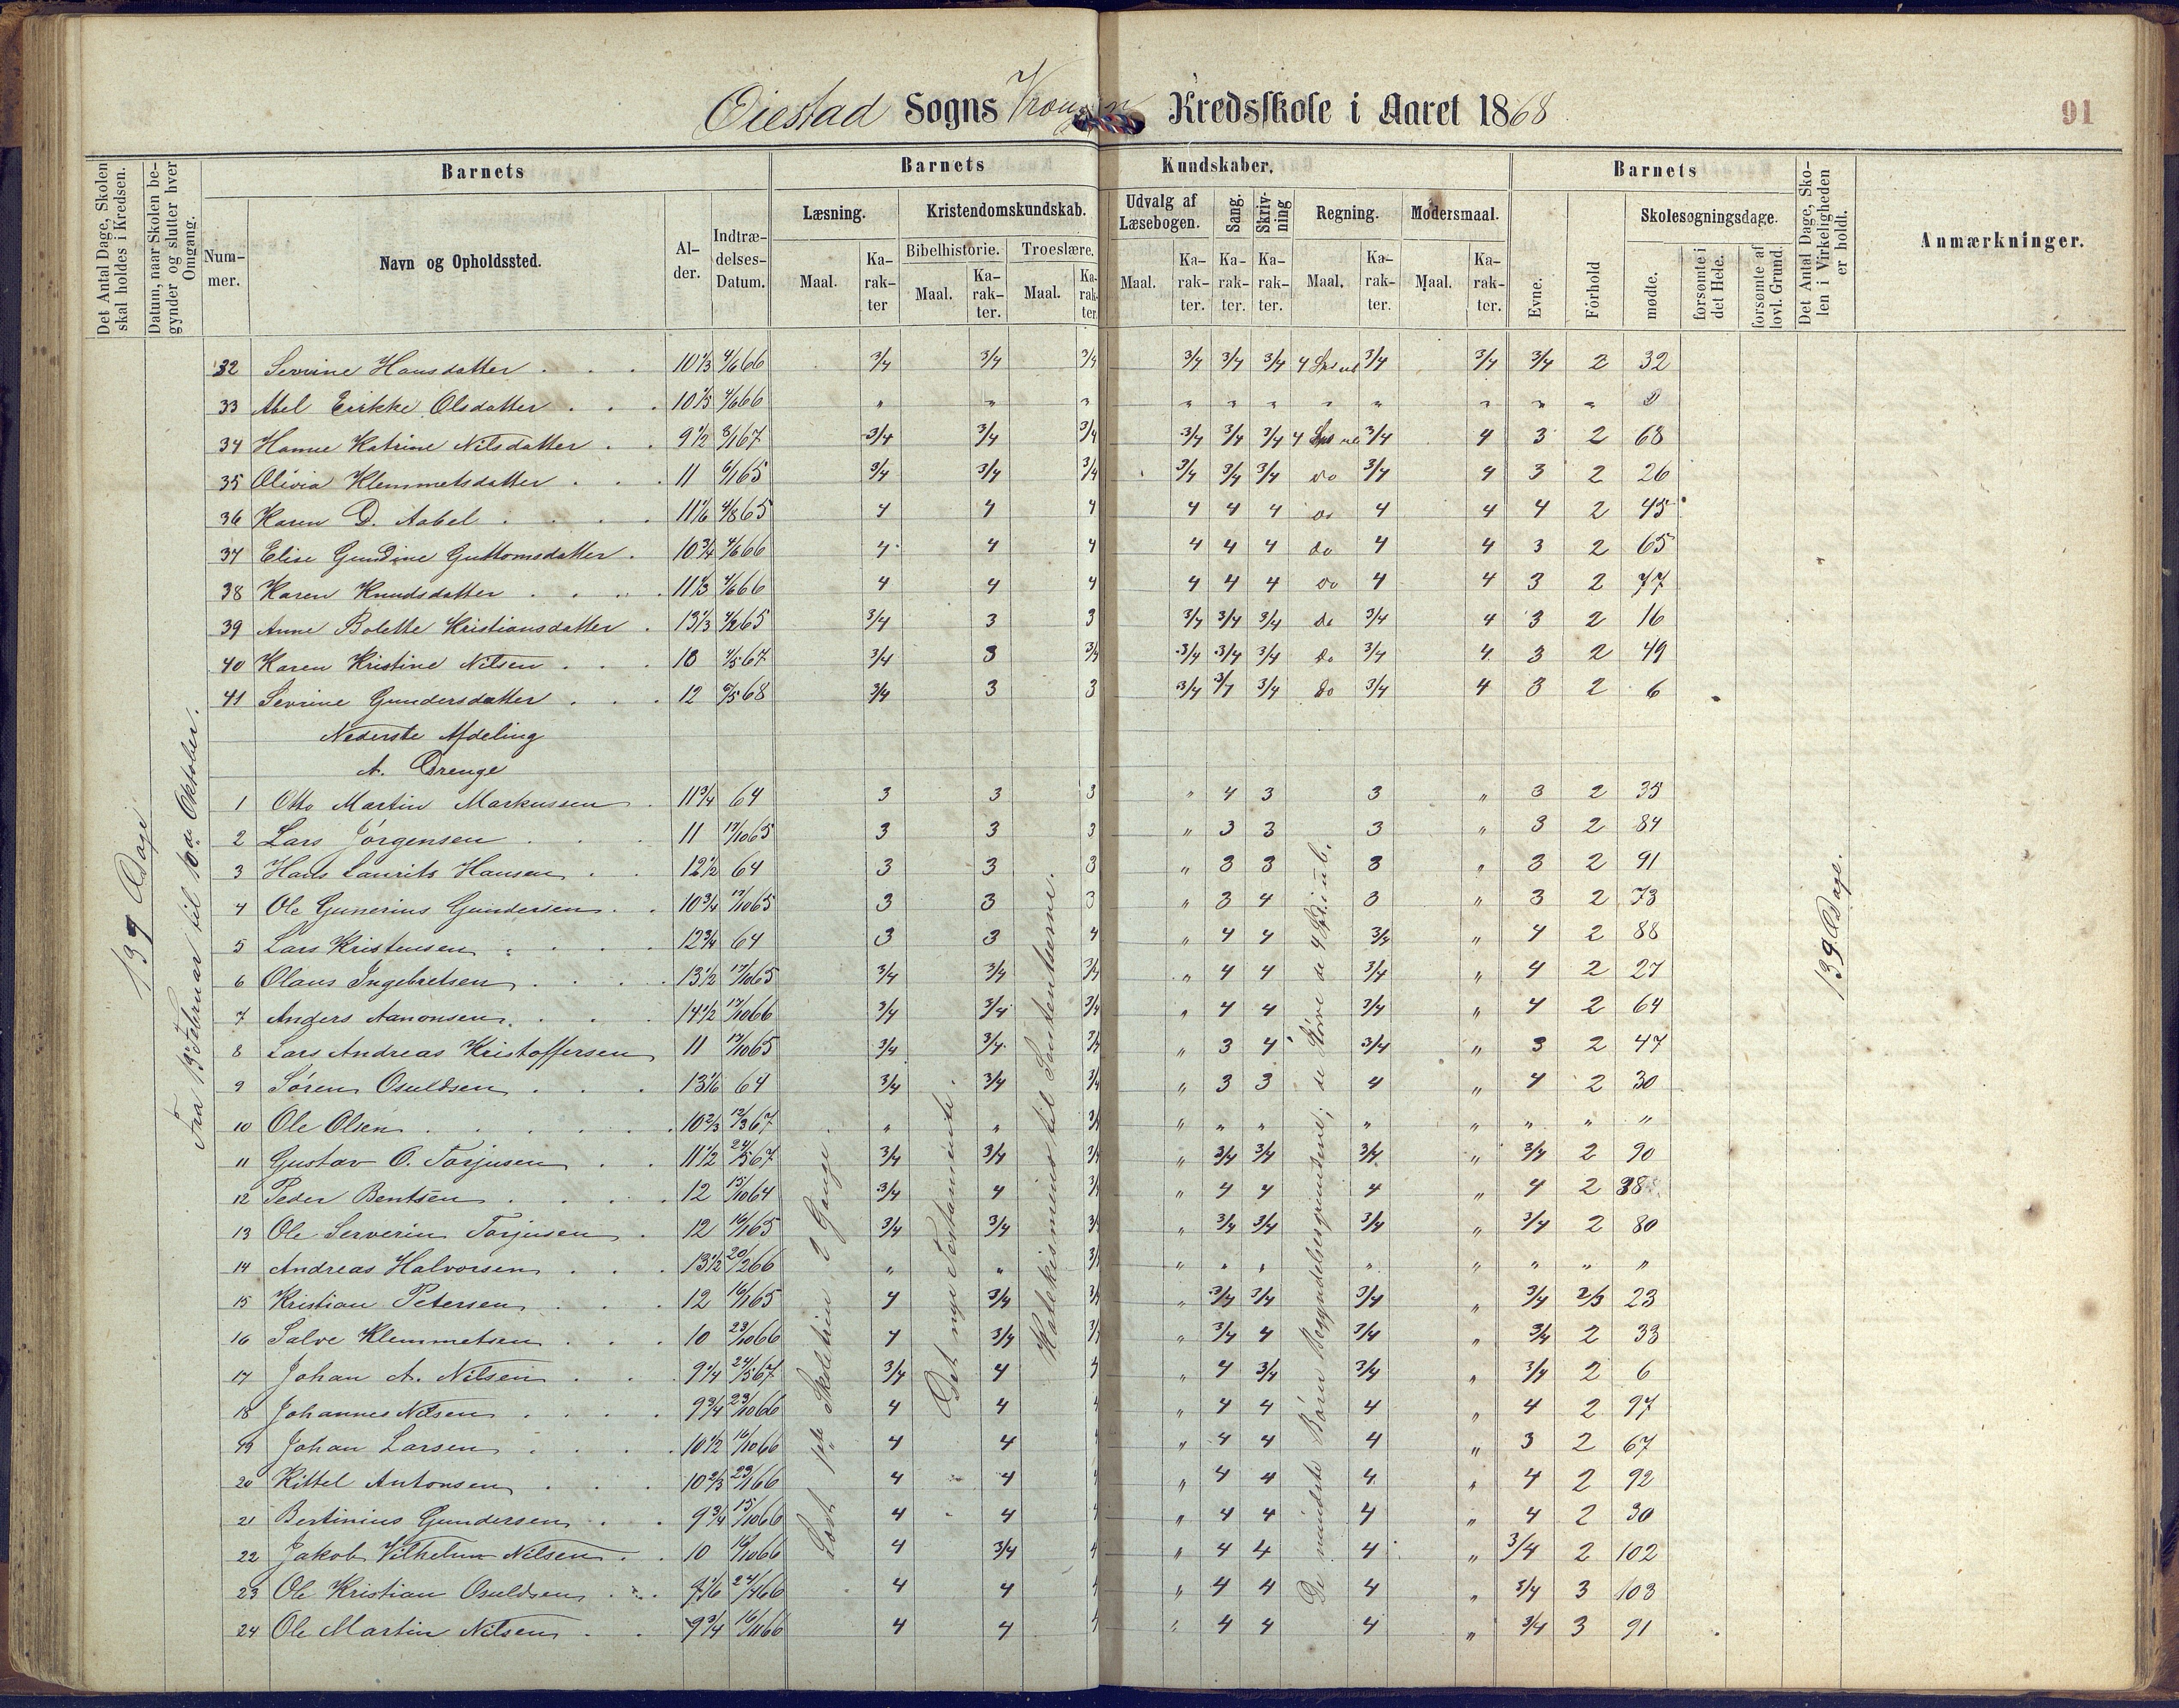 Øiestad Sogns Kredsskole i Aaret 1868
91
Det Antal Dage, Skolen skal holdes i Kredsen.
Datum, naar Skolen begynder og slutter hver Omgang.
Barnets
Barnets
Kundskaber.
Barnets
Det Antal Dage, Skolen i Virkeligheden er holdt.
Anmærkninger.
Nummer.
Navn og Opholdssted.
Alder.
Indtrædelses-Datum.
Læsning.
Kristendomskundskab.
Udvalg af Læsebogen.
Sang.
Skrivning
Regning.
Modersmaal.
Evne.
Forhold
Skolesøgningsdage.
Bibelhistorie.
Troeslære.
Maal.
Karakter
Maal.
Karakter.
Maal.
Karakter.
Maal.
Karakter.
Karakter.
Karakter.
Maal.
Karakter.
Maal.
Karakter.
mødte.
forsømte i det Hele.
forsømte af lovl. Grund.
32 Sevrine Hansdatter 10 1/3 4/6 66 3/4 3/4 3/4 3/4 3/4 3/4 3/4 3/4 3/4 2 32
33 Abel Erikke Olsdatter 4/6 66 " " " " " " " " " " "
34 Hanne Katrine Nilsdatter 9 1/2 8/1 67 3/4 3/4 3/4 3/4 3/4 3/4 3/4 4 3 2 68
35 Olivia Klemmetsdatter 11 6/1 65 3/4 3/4 3/4 3/4 3/4 3/4 do 3/4 4 3 2 26
36 Karen D. Aabel 11 1/6 4/8 65 4 4 4 4 4 4 do 4 4 4 2 45
37 Elise Gundine Guttomsdatter 10 3/4 4/6 66 4 4 4 4 4 4 do 4 4 3 2 65
38 Karen Knudsdatter 11 1/3 4/6 66 4 4 4 4 4 4 do 4 4 3 2 77
39 Anne Bolette Kristiansdatter 13 1/3 4/2 65 3/4 3 3 3/4 3/4 3/4 do 3/4 4 3 2 16
40 Karen Kristine Nilsen 10 4/5 67 3/4 3 3/4 3/4 3/4 3/4 do 3/4 4 3 2 49
41 Sevrine Gundersdatter 12 68 3/4 3 3 3/4 3/4 3/4 do 3/4 4 3 2 6
Nederste Afdeling
A. Drenge
1 Otto Martin Markussen 11 3/4 64 3 3 3 " 4 3 3 " 3 2 35
2 Lars Jørgensen 11 17/10 65 3 3 3 " 3 3 3 " 3 2 84
3 Hans Laurits Hansen 12 1/2 64 3 3 3 " 3 3 3 " 3 2 91
4 Ole Gunerius Gundersen 10 3/4 17/10 65 3 3 3 " 3 4 3 " 3 2 73
5 Lars Kristensen 12 3/4 64 3 3 4 " 4 4 3/4 " 4 2 88
6 Olaus Ingebretsen 13 1/2 17/10 65 3/4 3/4 3/4 " 4 4 3/4 " 4 2 27
7 Anders Aanonsen 14 1/2 17/10 66 3/4 3/4 3/4 " 4 4 3/4 " 4 2 64
8 Lars Andreas Kristoffersen 11 17/10 65 3/4 3/4 3/4 " 3 4 3/4 " 3 2 47
9 Søren Osuldsen 13 1/6 64 3/4 3/4 3/4 " 3 3 4 " 4 2 30
10 Ole Olsen 10 2/3 12/3 67 " " 3/4 " " " " " " " "
11 Gustav O. Torjusen 11 1/2 24/5 67 3/4 3/4 3/4 " 3/4 3/4 3/4 " 3/4 2 90
12 Peder Bentsen 12 15/10 64 3/4 4 3/4 " 4 4 4 " 4 2 38
13 Ole Serverin Torjusen 12 16/1 65 3/4 3/4 3/4 " 3/4 3/4 3/4 " 3/4 2 80
14 Andreas Halvorsen 13 1/2 20/2 66 " " 3/4 " " " " " " " "
15 Kristian Petersen 12 16/1 65 4 3/4 3/4 " 3/4 3/4 3/4 " 3/4 2/3 23
16 Salve Klemmetsen 10 23/10 66 4 3/4 3/4 " 3/4 4 3/4 " 3/4 2 33
17 Johan A. Nilsen 9 1/4 24/5 67 3/4 4 4 " 4 3/4 3/4 " 3/4 2 6
18 Johannes Nilsen 9 3/4 23/10 66 4 4 4 " 4 4 4 " 4 2 97
19 Johan Larsen 10 1/2 16/10 66 4 4 4 " 4 4 4 " 3 2 67
20 Kittel Antonsen 10 2/3 23/1 66 4 4 4 " 4 4 4 " 4 2 92
21 Bertinius Gundersen 9 3/4 15/10 66 4 4 4 " 4 4 4 " 4 2 30
22 Jakob Vilhelm Nilsen 10 16/10 66 4 3/4 4 " 4 4 4 " 3/4 2 102
23 Ole Kristian Osuldsen 24/4 66 4 4 4 " 4 4 4 " 3/4 3 103
24 Ole Martin Nilsen 9 3/4 16/11 66 4 4 4 " 4 4 4 " 3/4 3 91
139 Dage
Fra 13de Februar til 10de Oktober.
Læst 1ste Skoletrin 2 Gange
Det nye Testamente
Katekismens til Sakramenterne.
De mindste Børn Begyndelsesgrundene; de større de 4 Sp. i ub.
139 Dage.